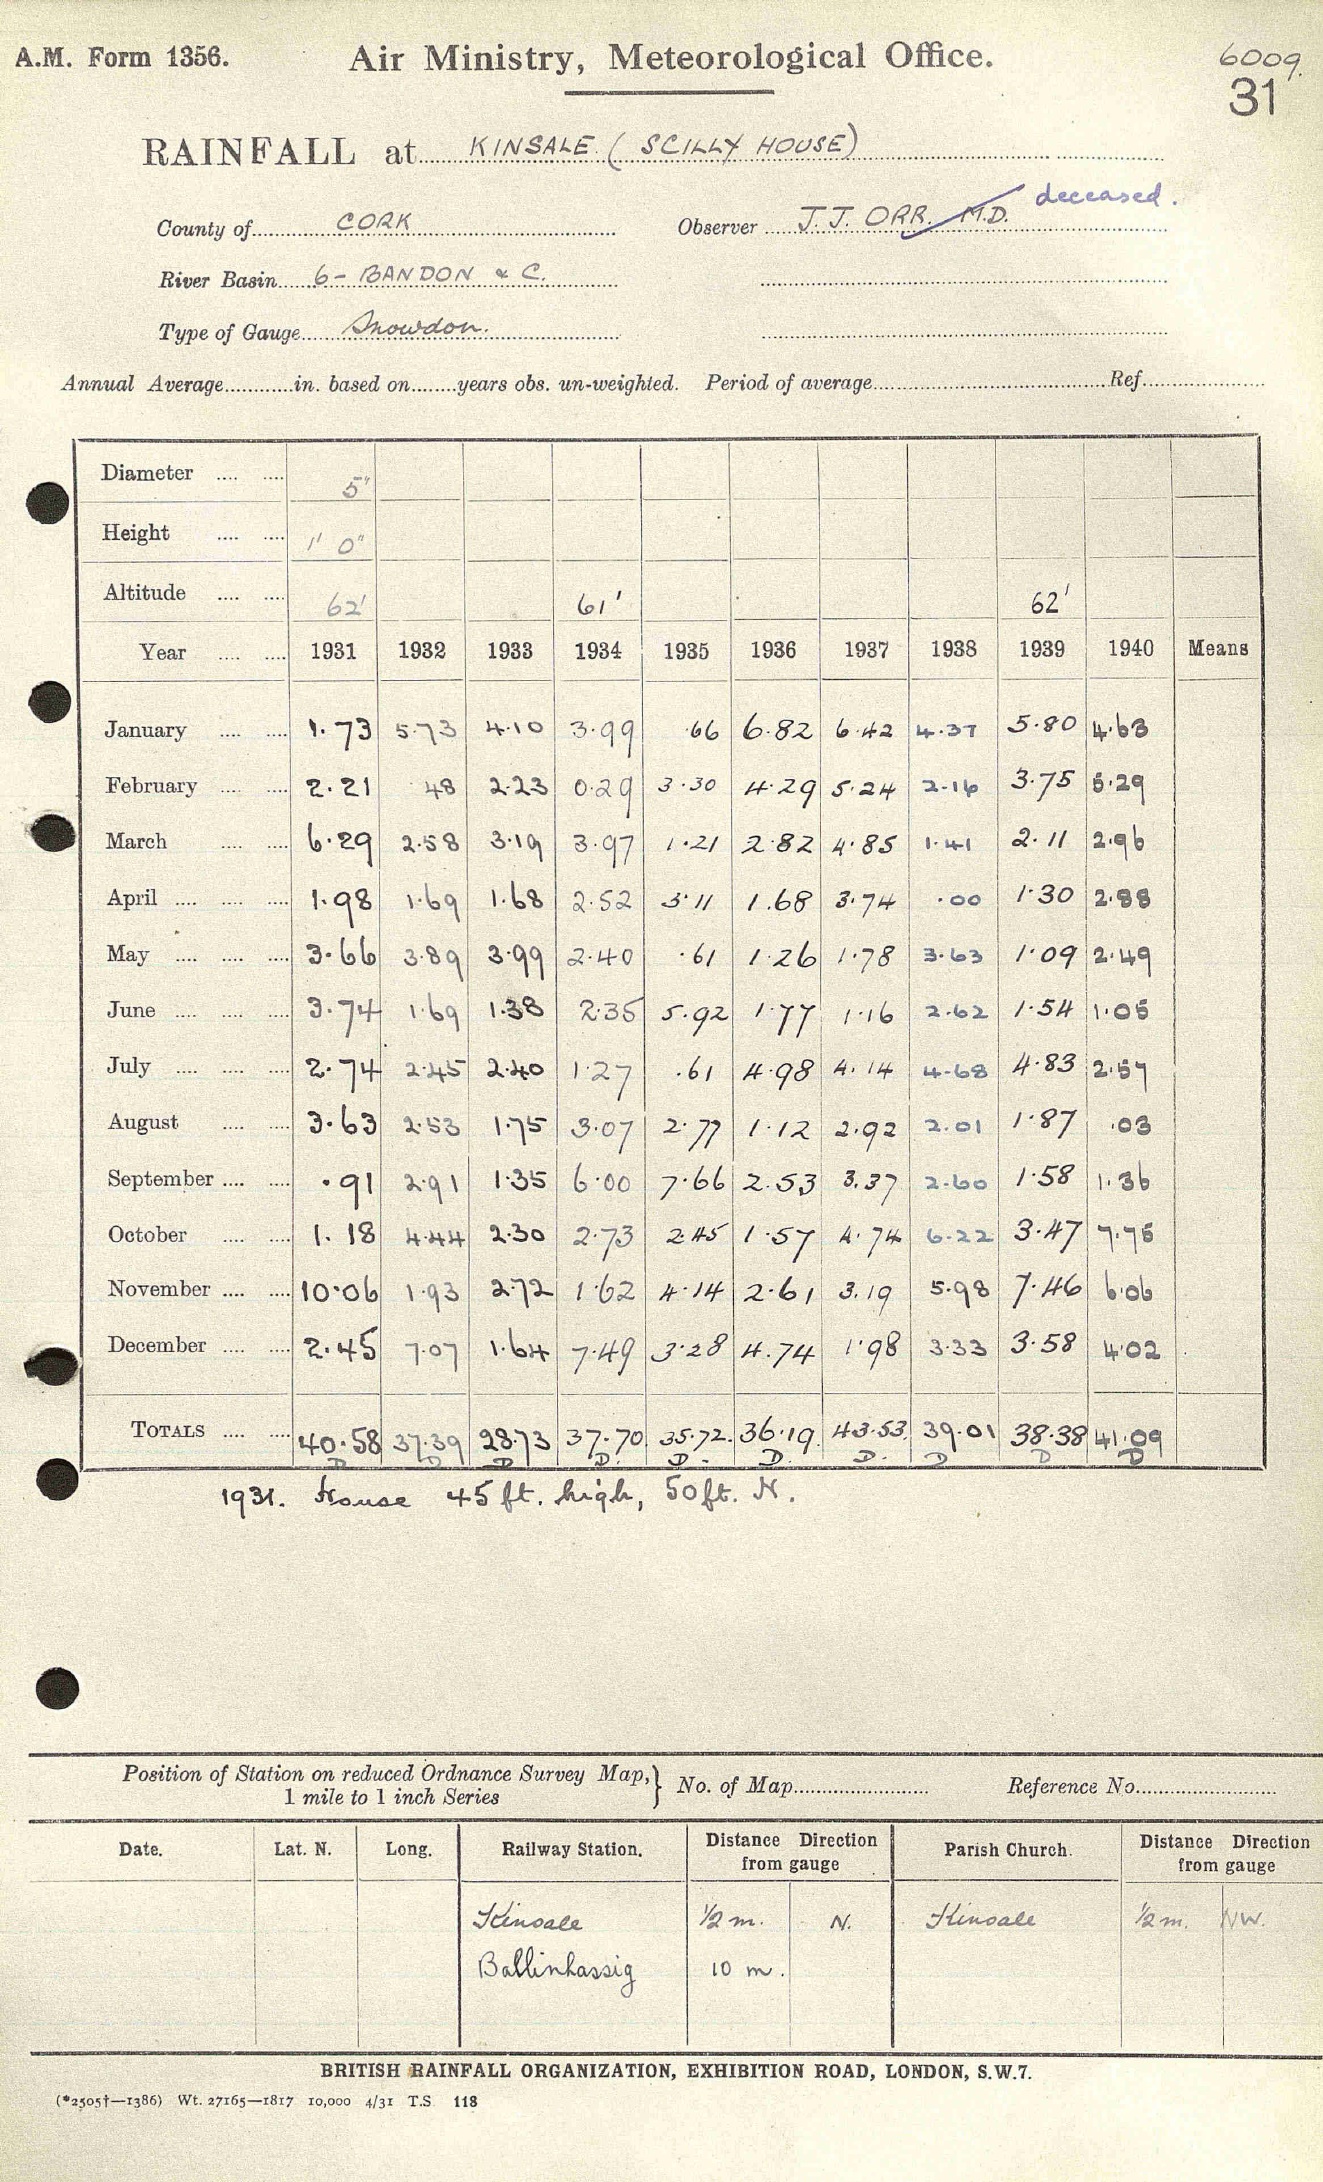 A.M. Form 1356.
Air Ministry, Meteorological Office.
6009.
31
RAINFALL at KINSALE (SCILLY HOUSE)
County of CORK Observer J. J. ORR. M.D. deceased.
River Basin 6- BANDON & C.
Type of Gauge Snowdon.
Annual Average in. based on years obs. un-weighted. Period of average Ref.
Diameter 5"
Height 1' 0"
Altitude 62' 61' 62'
Year 1931 1932 1933 1934 1935 1936 1937 1938 1939 1940 Means
January 1.73 5.73 4.10 3.99 .66 6.82 6.42 4.37 5.80 4.63
February 2.21 48 2.23 0.29 3.30 4.29 5.24 2.16 3.75 5.29
March 6.29 2.58 3.19 3.97 1.21 2.82 4.85 1.41 2.11 2.96
April 1.98 1.69 1.68 2.52 3.11 1.68 3.74 .00 1.30 2.88
May 3.66 3.89 3.99 2.40 .61 1.26 1.78 3.63 1.09 2.49
June 3.74 1.69 1.38 2.35 5.92 1.77 1.16 2.62 1.54 1.05
July 2.74 2.45 2.40 1.27 .61 4.98 4.14 4.68 4.83 2.57
August 3.63 2.53 1.75 3.07 2.77 1.12 2.92 2.01 1.87 .03
September .91 2.91 1.35 6.00 7.66 2.53 3.37 2.60 1.58 1.36
October 1.18 4.44 2.30 2.73 2.45 1.57 4.74 6.22 3.47 7.75
November 10.06 1.93 2.72 1.62 4.14 2.61 3.19 5.98 7.46 6.06
December 2.45 7.07 1.64 7.49 3.28 4.74 1.98 3.33 3.58 4.02
TOTALS 40.58 37.39 28.73 37.70 35.72 36.19 43.53 39.01 38.38 41.09
D D D D. D. D. D. D D D
1931. House 45 ft. high, 50 ft. N.
Position of Station on reduced Ordnance Survey Map, No. of Map Reference No.
1 mile to 1 inch Series
Date. Lat. N. Long. Railway Station. Distance Direction from gauge Parish Church. Distance Direction from gauge
Kinsale 1/2 m. N. Kinsale 1/2 m. NW.
Ballinhassig 10 m.
BRITISH RAINFALL ORGANIZATION, EXHIBITION ROAD, LONDON, S.W.7.
(*2505†—1386) Wt. 27165—1817 10,000 4/31 T.S. 118